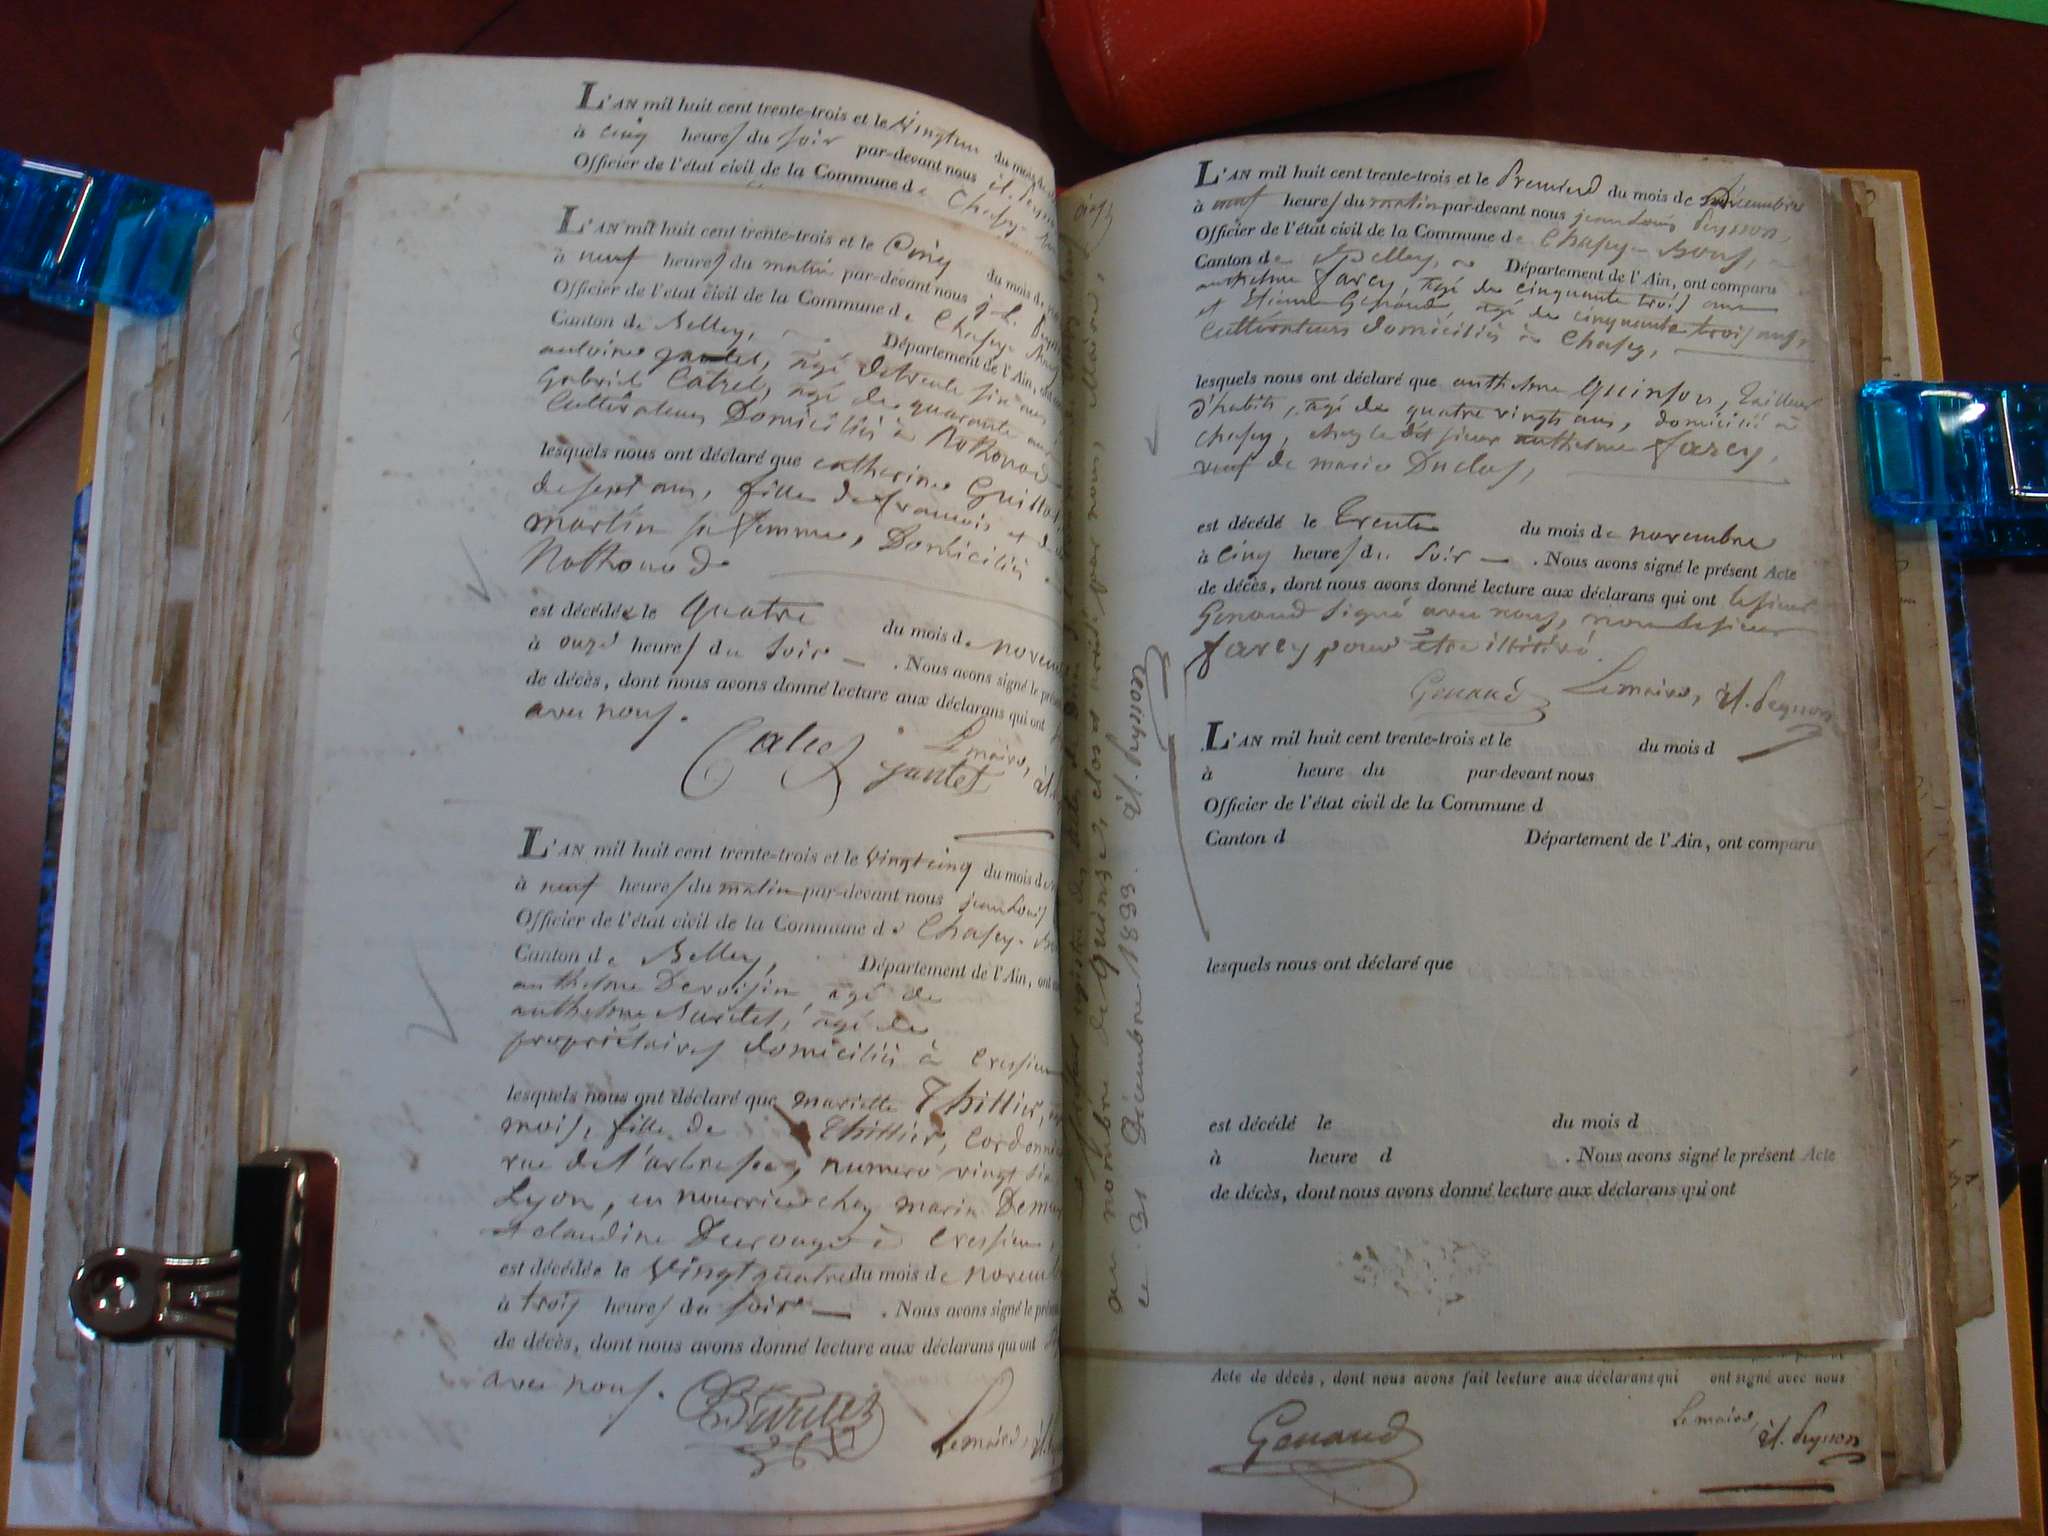 L'AN mil huit cent trente-trois et le vingtun du mois de
à cinq heures du soir par-devant nous jl. peyson
Officier de l'état civil de la Commune de Chasey
L'AN mil huit cent trente-trois et le Cinq du mois de
à neuf heures du matin par-devant nous j. L.
Officier de l'état civil de la Commune de Chasey
Canton de Belley, Département de l'Ain,
antoine jantet, âgé de trente six ans
Gabriel Catzel, âgé de quarante ans
Cultivateurs Domiciliés à Rothonod
lesquels nous ont déclaré que catherine Guillot
de sept ans, fille de francois et de
martin sa femme, Domiciliés
Rothonod
est décédée le quatre du mois de novem
à onze heures du soir — . Nous avons signé le prés
de décès, dont nous avons donné lecture aux déclarans qui ont
avec nous.
Le maire,
jantet
L'AN mil huit cent trente-trois et le vingt cinq du mois de
à neuf heures du matin par-devant nous jean Louis
Officier de l'état civil de la Commune de Chasey-
Canton de Belley, Département de l'Ain, ont
anthelme Devoisin, âgé de
anthelme Buretet, âgé de
propriétaires domiciliés à Cressieu
lesquels nous ont déclaré que mariette Thittier,
mois, fille de Thittier, Cordonnier
rue de l'arbre sec, numero vingt six
Lyon, en nourrice chez marin
et claudine à Cressieu,
est décédée le vingt quatre du mois de novemb
à trois heures du soir — . Nous avons signé le prés
de décès, dont nous avons donné lecture aux déclarans qui ont
avec nous.
Le maire,
registre des actes de Décès
au nombre de quinze, clos et arrêté par nous, Maire,
ce 31 Décembre 1833. jl. peysson
L'AN mil huit cent trente-trois et le Premier du mois de Décembre
à neuf heures du matin par-devant nous jean Louis Peysson,
Officier de l'état civil de la Commune de Chasey-Bons,
Canton de Belley, Département de l'Ain, ont comparu
anthelme Jarcy, âgé de cinquante trois ans
et Etienne Genaud, âgé de cinquante trois ans,
Cultivateurs domiciliés à Chasey,
lesquels nous ont déclaré que anthelme Guinson, tailleur
d'habits, âgé de quatre vingts ans, domicilié à
chasey, chez le dit sieur anthelme Jarcy,
veuf de marie Duclos,
est décédé le trente du mois de novembre
à Cinq heures du soir — . Nous avons signé le présent Acte
de décès, dont nous avons donné lecture aux déclarans qui ont le sieur
Genaud signé avec nous, non le sieur
Jarcy pour être illitéré.
Genaud Le maire, jl. Peysson
L'AN mil huit cent trente-trois et le du mois d
à heure du par-devant nous
Officier de l'état civil de la Commune d
Canton d Département de l'Ain, ont comparu
lesquels nous ont déclaré que
est décédé le du mois d
à heure d . Nous avons signé le présent Acte
de décès, dont nous avons donné lecture aux déclarans qui ont
Acte de décès, dont nous avons fait lecture aux déclarans qui ont signé avec nous
Genaud Le maire, jl. Peysson